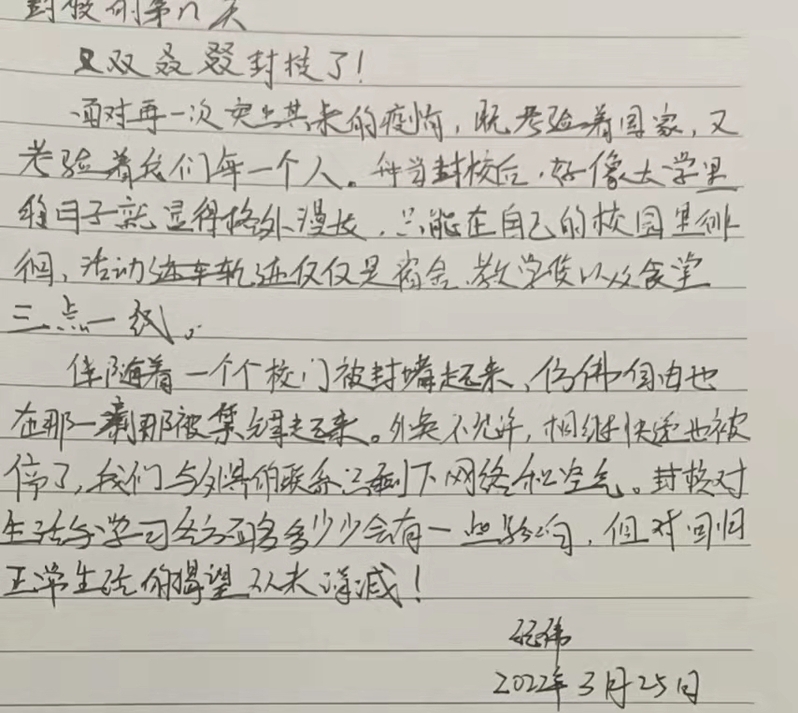 封校的第n天
又双叒叕封校了！
面对再一次突出其来的疫情，既考验着国家，又
考验着我们每一个人。每当封校后，好像大学里
的日子就显得格外漫长，只能在自己的校园里徘
徊，活动运车轨迹仅仅是宿舍、教学楼以及食堂
三点一线。
伴随着一个个校门被封堵起来，仿佛自由也
在那一刹那被禁锢起来。外卖不允许，相继快递也被
停了，我们与外界的联系只剩下网络和空气。封校对
生活与学习各方面多多少少会有一些影响，但对回归
正常生活的渴望从未消减！
2022年3月25日